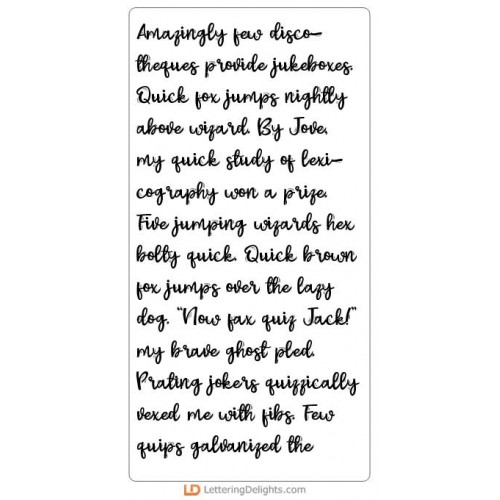 Amazingly few disco-
theques provide jukeboxes.
Quick fox jumps nightly
above wizard. By Jove,
my quick study of lexi-
cography won a prize.
Five jumping wizards hex
bolty quick. Quick brown
fox jumps over the lazy
dog. "Now fax quiz Jack!"
my brave ghost pled.
Prating jokers quizzically
vexed me with fibs. Few
quips galvanized the
LD LetteringDelights.com